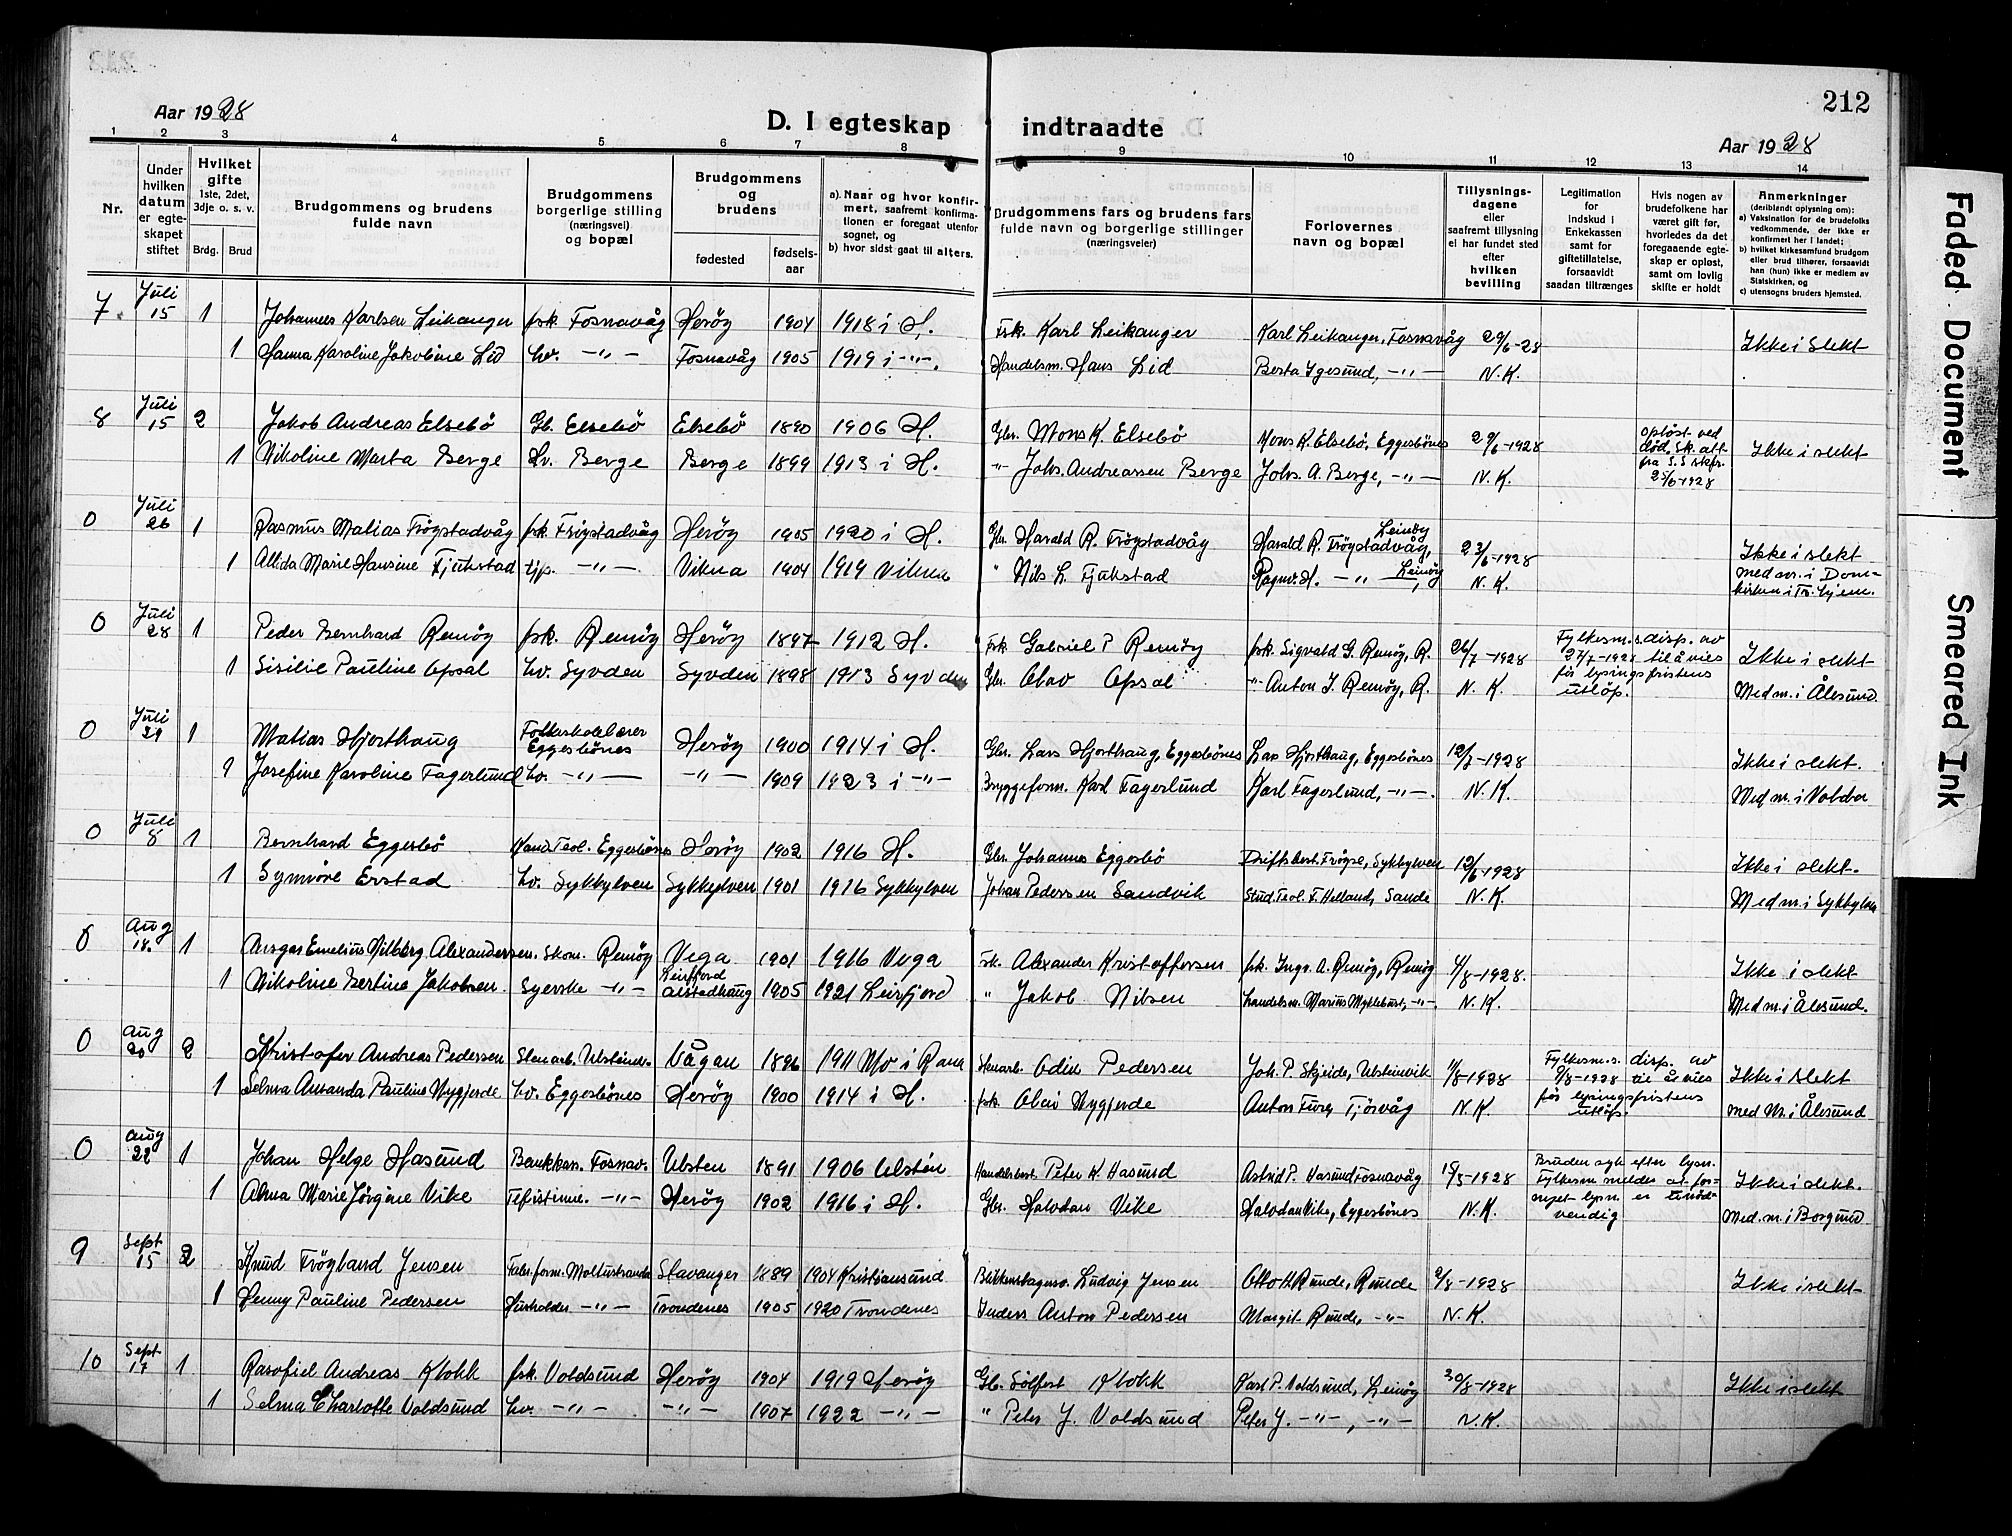 212
Aar 1928
D. I egteskap indtraadte
Aar 1928
1 2 3 4 5 6 7 8 9 10 11 12 13 14
Nr.
Under hvilken datum er egteskapet stiftet
Hvilket gifte 1ste, 2det, 3dje o. s. v.
Brdg. Brud
Brudgommens og brudens fulde navn
Brudgommens borgerlige stilling (næringsvei) og bopæl
Brudgommens og brudens
fødested
fødselsaar
a). Naar og hvor konfirmert, saafremt konfirmationen er foregaat utenfor sognet, og
b) hvor sidst gaat til alters.
Brudgommens fars og brudens fars fulde navn og borgerlige stillinger (næringsveier)
Forlovernes navn og bopæl
Tillysningsdagene eller saafremt tillysning ei har fundet sted efter hvilken bevilling
Legitimation for indskud i Enkekassen samt for giftetillatelse, forsaavidt saadan tiltrænges
Hvis nogen av brudefolkene har været gift før, hvorledes da det foregaaende egteskap er opløst, samt om lovlig skifte er holdt
Anmerkninger (deriblandt oplysning om):
a) Vaksination for de brudefolks vedkommende, der ikke er konfirmert her i landet;
b) hvilket kirkesamfund brudgom eller brud tilhører, forsaavidt han (hun) ikke er medlem av Statskirken, og
c) utensogns bruders hjemsted.
7. Juli 15 1 Johannes Karlsen Leikanger fsk. Fosnavåg Herøy 1904 1918 i H. Fsk. Karl Leikanger Karl Leikanger, Fosnavåg 29/6-28 Ikke i Slekt
1 Hanna Karoline Jakobine Lid hv. -"- Fosnavåg 1905 1919 i -"-. Handelsm. Hans Lid Berta Igesund, -"- N.K.
8 Juli 15 2 Jakob Andreas Elsebö Gb. Elsebö Elsebö 1890 1906 H. Gbr. Mons K. Elsebö Mons K. Elsebö, Eggesbönes 29/6-1928 opløst ved död. Sk. att. fra S.S skfr. 25/6-1928 Ikke i slekt
1 Nikoline Marta Berge Hv. Berge Berge 1899 1913 i H. -"- Johs. Andreassen Berge Johs. A. Berge, -"- N.K.
0 Juli 26 1 Rasmus Matias Frøystadvåg fsk. Frøystadvåg Herøy 1905 1920 i H. Gbr. Harald R. Frøystadvåg Harald R. Frøystadvåg, Leinøy 23/6-1928 Ikke i slekt
1 Allida Marie Hansine Fjukstad tjp. -"- Vikna 1904 1919 Vikna " Nils L. Fjukstad Ragnv. H. -"- Leinøy N.K. med m. i Domkirken i Tr.hjem.
0 Juli 28 1 Peder Bernhard Remøy fsk. Remøy Herøy 1897 1912 H. Fsk Gabriel P Remøy fsk. Sigvald G. Remøy, R. 26/7-1928 Fylkesm.s. disp. av 27/7-1928 til å vies før lysingsfristens utløp. Ikke i slekt
1 Sisilie Pauline Opsal hv. Syvden Syvden 1898 1913 Syvden Gbr. Olav Opsal -"- Anton J. Remøy, R. N.K. Med m. i Ålesund
0 Juli 29 1 Matias Hjorthaug Folkeskolelærer Eggesbönes Herøy 1900 1914 i H. Gbr. Lars Hjorthaug, Eggesbönes Lars Hjorthaug, Eggesbönes 12/7-1928 Ikke i slekt.
1 Josefine Karoline Fagerlund hv. -"- -"- 1909 1923 i -"- Bryggeform. Karl Fagerlund Karl Fagerlund, -"-. N.K. Med m. i Volda
0 Juli 8 1 Bernhard Eggesbö Kand. Teol. Eggesbönes Herøy 1902 1916 H. Gbr. Johannes Eggesbö Driftsbest. Frøyse, Sykkylven 12/6-1928 Ikke i slekt.
1 Synnøve Erstad hv. Sykkylven Sykkylven 1901 1916 Sykkylven Johan Pedersen Sandvik Stud. Teol. F. Helland, Sande N.K. Med m. i Sykkylven
0 Aug 18. 1 Ansgar Emelius Vilberg Alexandersen. Skom. Remøy Vega 1901 1916 Vega Fsk. Alexander Kristoffersen fsk. Ingv. A. Remøy, Remøy 4/8-1928. Ikke i slekt
1 Nikoline Bertine Jakobsen. Syerske -"- Leirfjord Alstadhaug 1905 1921 Leirfjord " Jakob Nilsen handelsm. Marius Myklebust, -"- N.K. Med m. i Ålesund.
0 Aug 20 2 Kristofer Andreas Pedersen Stenarb. Ulsteinv. Vågan 1896 1911 Mo i Rana Stenarb. Odin Pedersen Joh. P. Skjeide, Ulsteinvik 11/8-1928 Fylkesm.s. disp. av 9/8-1928 til å vies før lysingsfristens utløp. Ikke i slekt
1 Selma Amanda Pauline Nygjerde hv. Eggesbönes Herøy 1900 1914 i H. fsk. Olai Nygjerde Anton Furø Tjörvåg N.K. med m. i Ålesund
0 Aug 22 1 Johan Helge Hasund Bankkas. Fosnav. Ulsten 1891 1906 Ulstén Handelsbest. Peter K Hasund Astrid P. Hasund Fosnavåg 15/5-1928 Bruden syk efter lysn. Fylkesm. melder at fornyet lysn. er unødvendig Ikke i slekt.
1 Alma Marie Jörgine Vike Tlfistinne. -"- Herøy 1902 1916 i H. Gbr. Halvdan Vike Halvdan Vike, Eggesbönes N.K. Med. m. i Borgund
9 Sept 15 2 Knud Frøyland Jensen Fabr. form. Moltustranda Stavanger 1889 1904 Kristiansund Blikkenslagersv. Ludvig Jensen Otto H Runde, Runde 2/8-1928 Ikke i slekt
1 Henny Pauline Pedersen Husholder. -"- Trondenes 1905 1920 Trondenes Inders Anton Pedersen Margit Runde, -"- N.K.
10 Sept 17 1 Rasofiel Andreas Klokk fsk. Voldsund Herøy 1904 1919 Herøy Gb. Sölfest Klokk Karl P. Voldsund, Leinøy 30/8-1928 Ikke i slekt
1 Selma Charlotte Voldsund hv. -"- -"- 1907 1922 -"- " Peter J. Voldsund Peter J. -"-, -"- N.K.
Faded Document
Smeared Ink